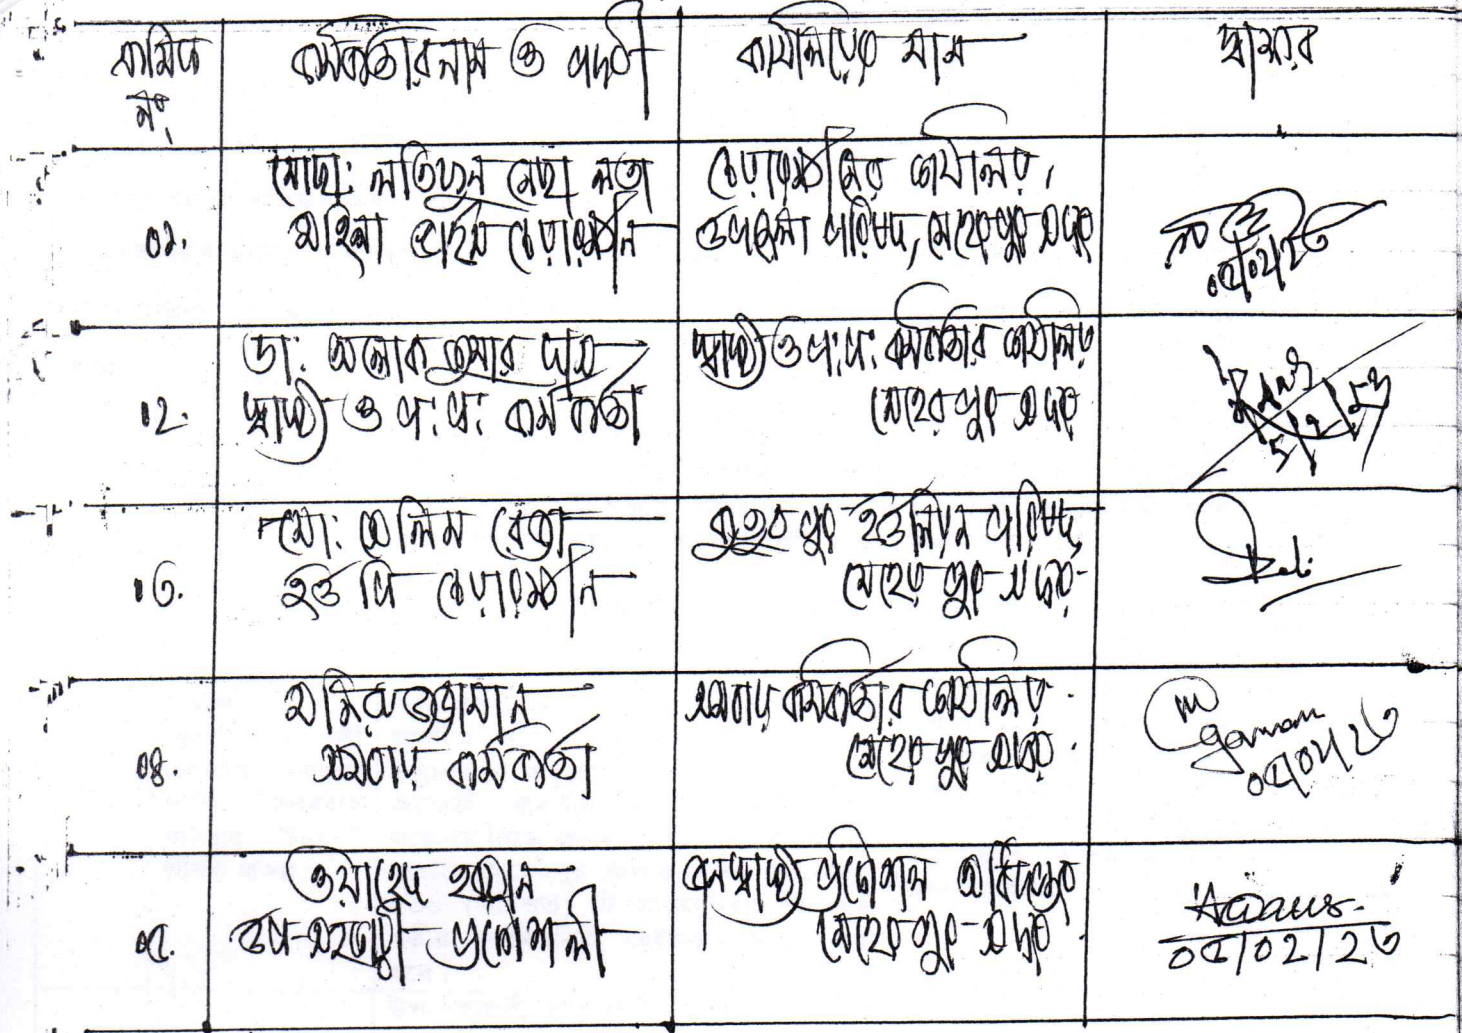 ক্রমিক নং
কর্মকর্তার নাম ও পদবী
কার্যালয়ের নাম
স্বাক্ষর
০১.
মোছা: লতিফুন নেছা লতা
মহিলা ভাইস চেয়ারম্যান
চেয়ারম্যানের কার্যালয়,
উপজেলা পরিষদ, মেহেরপুর সদর
০২.
ডা: অলোক কুমার দাস
স্বাস্থ্য ও প: প: কর্মকর্তা
স্বাস্থ্য ও প: প: কর্মকর্তার কার্যালয়
মেহেরপুর সদর
০৩.
মো: সেলিম রেজা
ইউ পি চেয়ারম্যান
কুতুবপুর ইউনিয়ন পরিষদ,
মেহেরপুর সদর
০৪.
মনিরুজ্জামান
সমবায় কর্মকর্তা
সমবায় কর্মকর্তার কার্যালয়
মেহেরপুর সদর
০৫.
উপ-সহকারী প্রকৌশলী
জনস্বাস্থ্য প্রকৌশল অধিদপ্তর
মেহেরপুর সদর